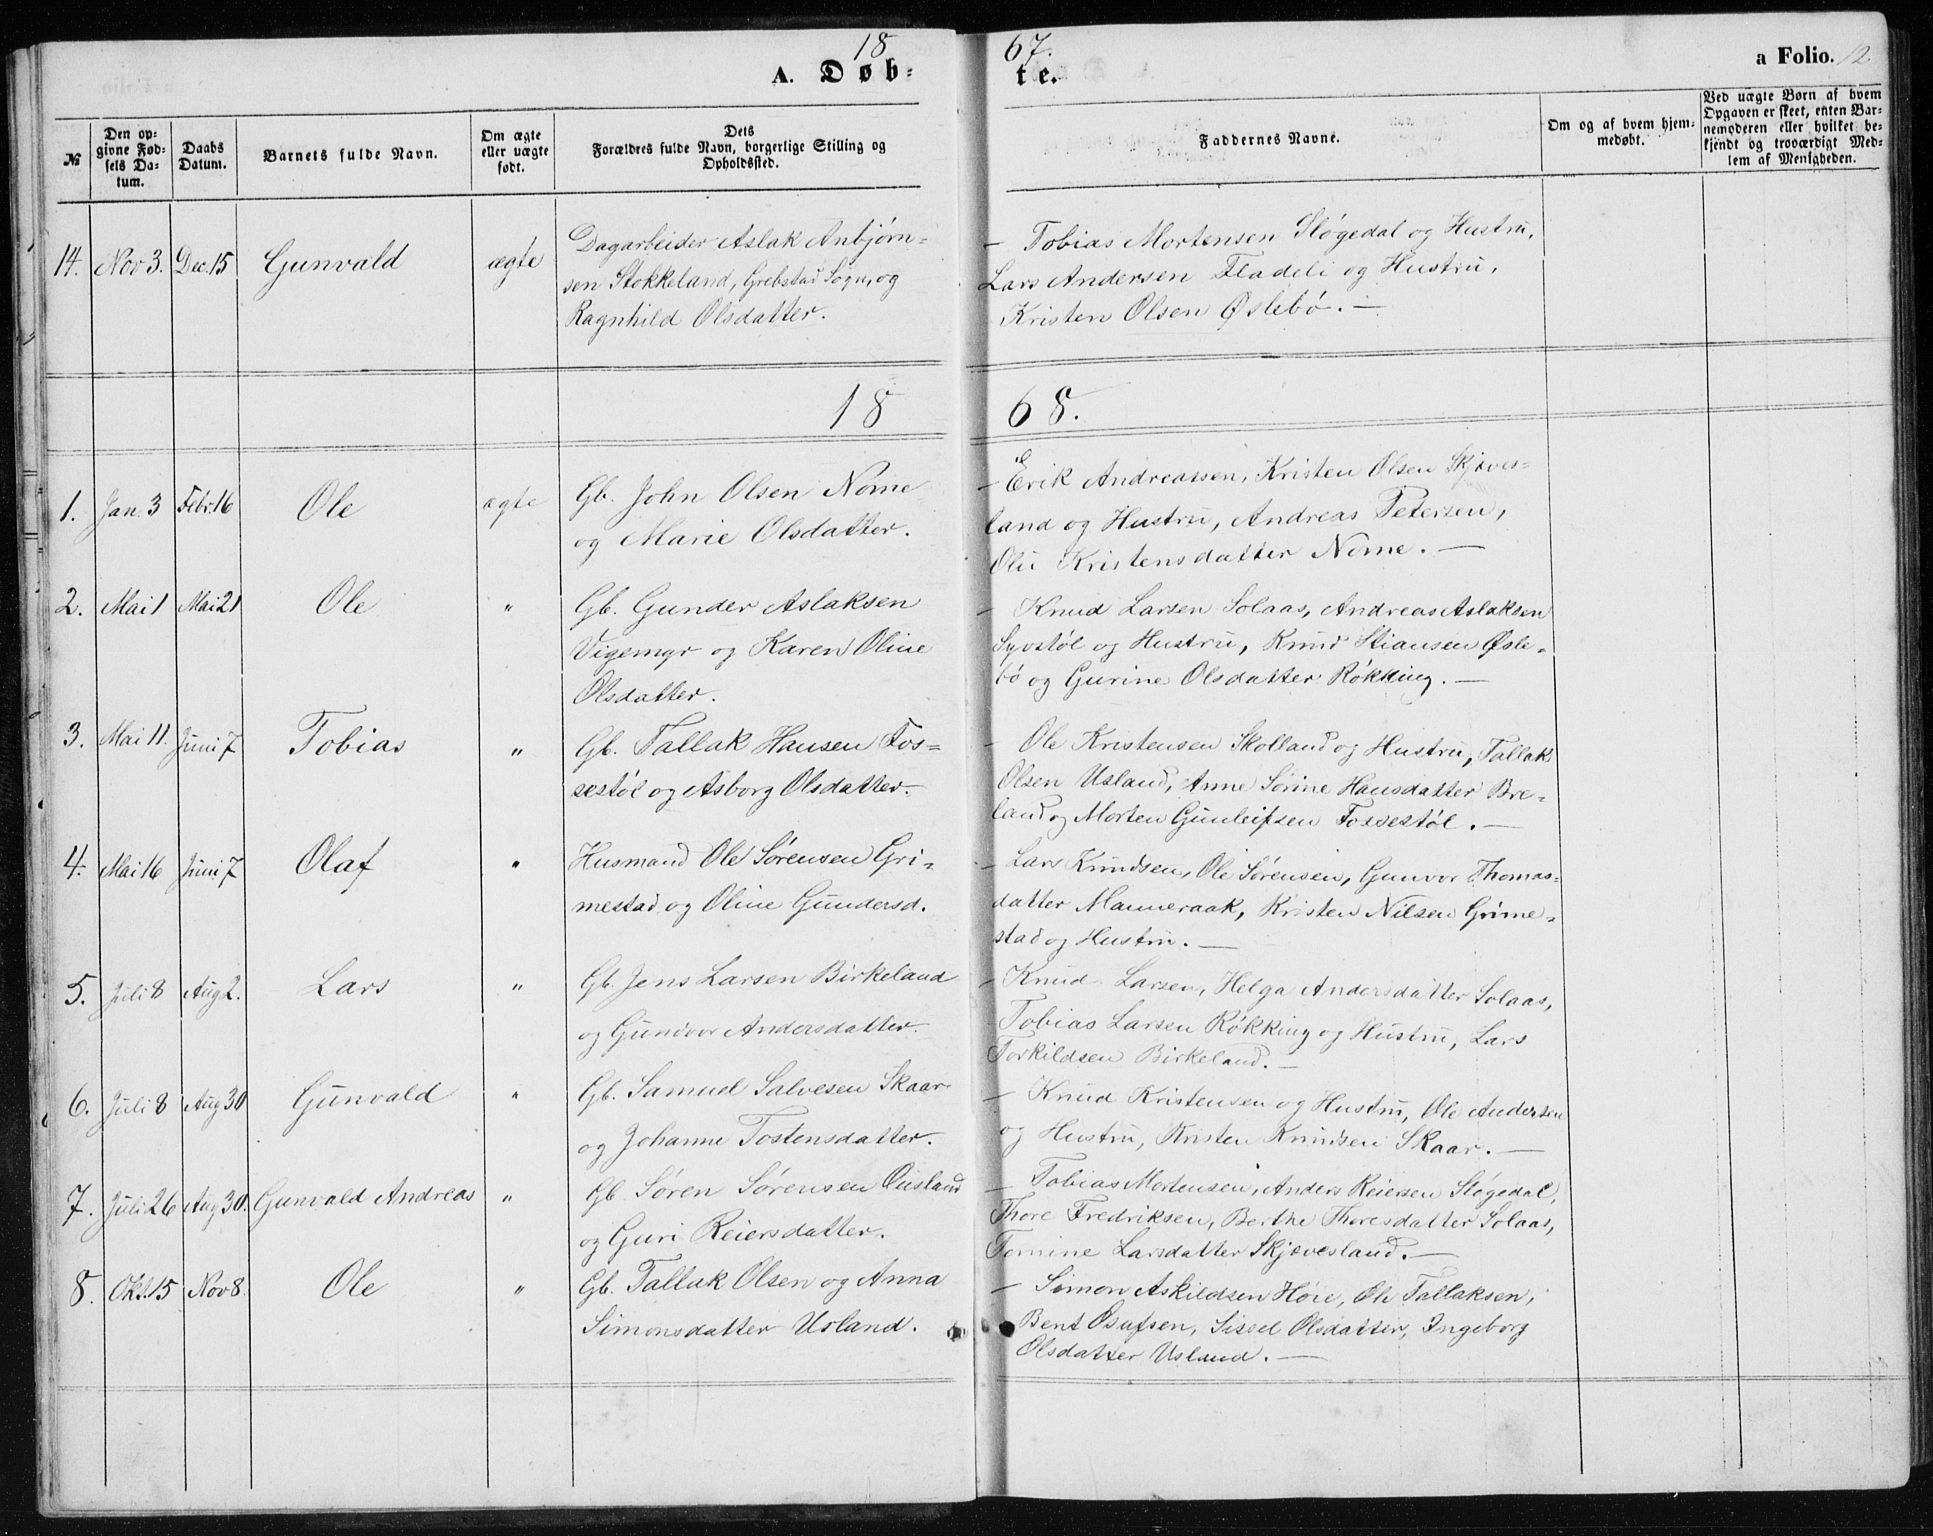 1867.
A. Døbte.
a Folio. 12
№
Den opgivne Fødsels Datum.
Daabs Datum.
Barnets fulde Navn.
Om ægte eller uægte født.
Dets Forældres fulde Navn, borgerlige Stilling og Opholdssted.
Faddernes Navne.
Om og af hvem hjemmedøbt.
Ved uægte Børn af hvem Opgaven er skeet, enten Barnemoderen eller hvilket bekjendt og troværdigt Medlem af Menigheden.
14. Nov 3. Dec. 15 Gunvald ægte
Dagarbeider Aslak Anbjørn-
sen Stokkeland, Grebstad Sogn, og
Ragnhild Olsdatter.
— Tobias Mortensen Sløgedal og Hustru,
Lars Andersen Fladeli og Hustru,
Kristen Olsen Øslebö. —
1868.
1. Jan. 3 Febr. 16 Ole ægte
Gb. John Olsen Nome
og Marie Olsdatter.
— Erik Andreassen, Kristen Olsen Skjæves-
land og Hustru, Andreas Petersen,
Kristensdatter Nome. —
2. Mai 1 Mai 21 Ole "
Gb. Gunder Aslaksen
Vigemyr og Karen Oline
Olsdatter.
— Knud Larsen Solaas, Andreas Aslaksen
Syvstøl og Hustru, Knud Stiansen Øsle-
bö og Gurine Olsdatter Røkking. —
3. Mai 11. Juni 7 Tobias "
Gb. Tallak Hansen Fos-
sestøl og Asborg Olsdatter.
— Ole Kristensen Skolland og Hustru, Tallak
Olsen Usland, Anne Sørine Hansdatter Bre-
land og Morten Gunleifsen Fossestøl. —
4. Mai 16 Juni 7 Olaf "
Husmand Ole Sørensen Gri-
mestad og Oline Gundersd.
— Lars Knudsen, Ole Sørensen, Gunvor Thomas-
datter Manneraak, Kristen Nilsen Grime-
stad og Hustru. —
5. Juli 8 Aug 2. Lars "
Gb. Jens Larsen Birkeland
og Gundvor Andersdatter.
— Knud Larsen, Helga Andersdatter Solaas,
Tobias Larsen Røkking og Hustru, Lars
Torkildsen Birkeland. —
6. Juli 8 Aug 30 Gunvald "
Gb. Samuel Salvesen Skaar
og Johanne Tostensdatter.
— Knud Kristensen og Hustru, Ole Andersen
og Hustru, Kristen Knudsen Skaar. —
7. Juli 26 Aug 30. Gunvald Andreas "
Gb. Søren Sørensen Ousland
og Guri Reiersdatter.
— Tobias Mortensen, Anders Reiersen Sløgedal,
Thore Fredriksen, Berthe Thoresdatter Solaas,
Tomine Larsdatter Skjævesland. —
8. Okt. 15 Nov 8. Ole "
Gb. Tallak Olsen og Anna
Simonsdatter Usland.
— Simon Askildsen Høie, Ole Tallaksen,
Bent Osufsen, Sissel Olsdatter, Ingeborg
Olsdatter Usland. —